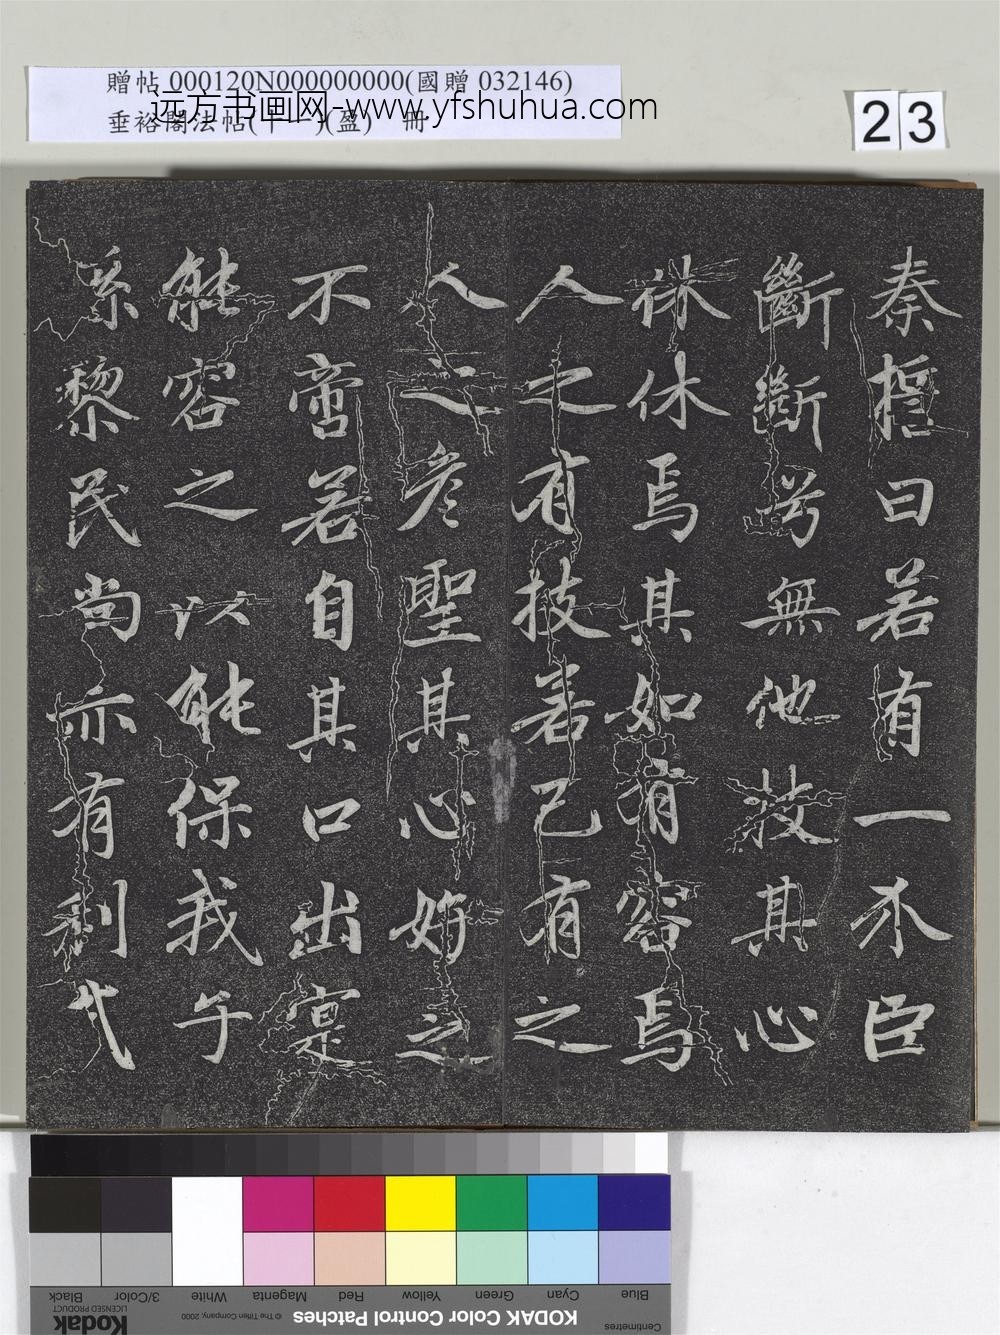 贈帖 000120N000000000(國贈 032146)
远方书画网-www.yfshuhua.com
垂裕閣法帖(十一)(盈) 冊
23
秦誓曰若有一个臣
斷斷兮無他技其心
休休焉其如有容焉
人之有技若己有之
人之彥聖其心好之
不啻若自其口出寔
能容之以能保我子
孫黎民尚亦有利哉
Blue Cyan Green Yellow Red Magenta White 3/Color Black
Centimetres
KODAK Color Control Patches
© The Tiffen Company, 2000
Kodak
LICENSED PRODUCT